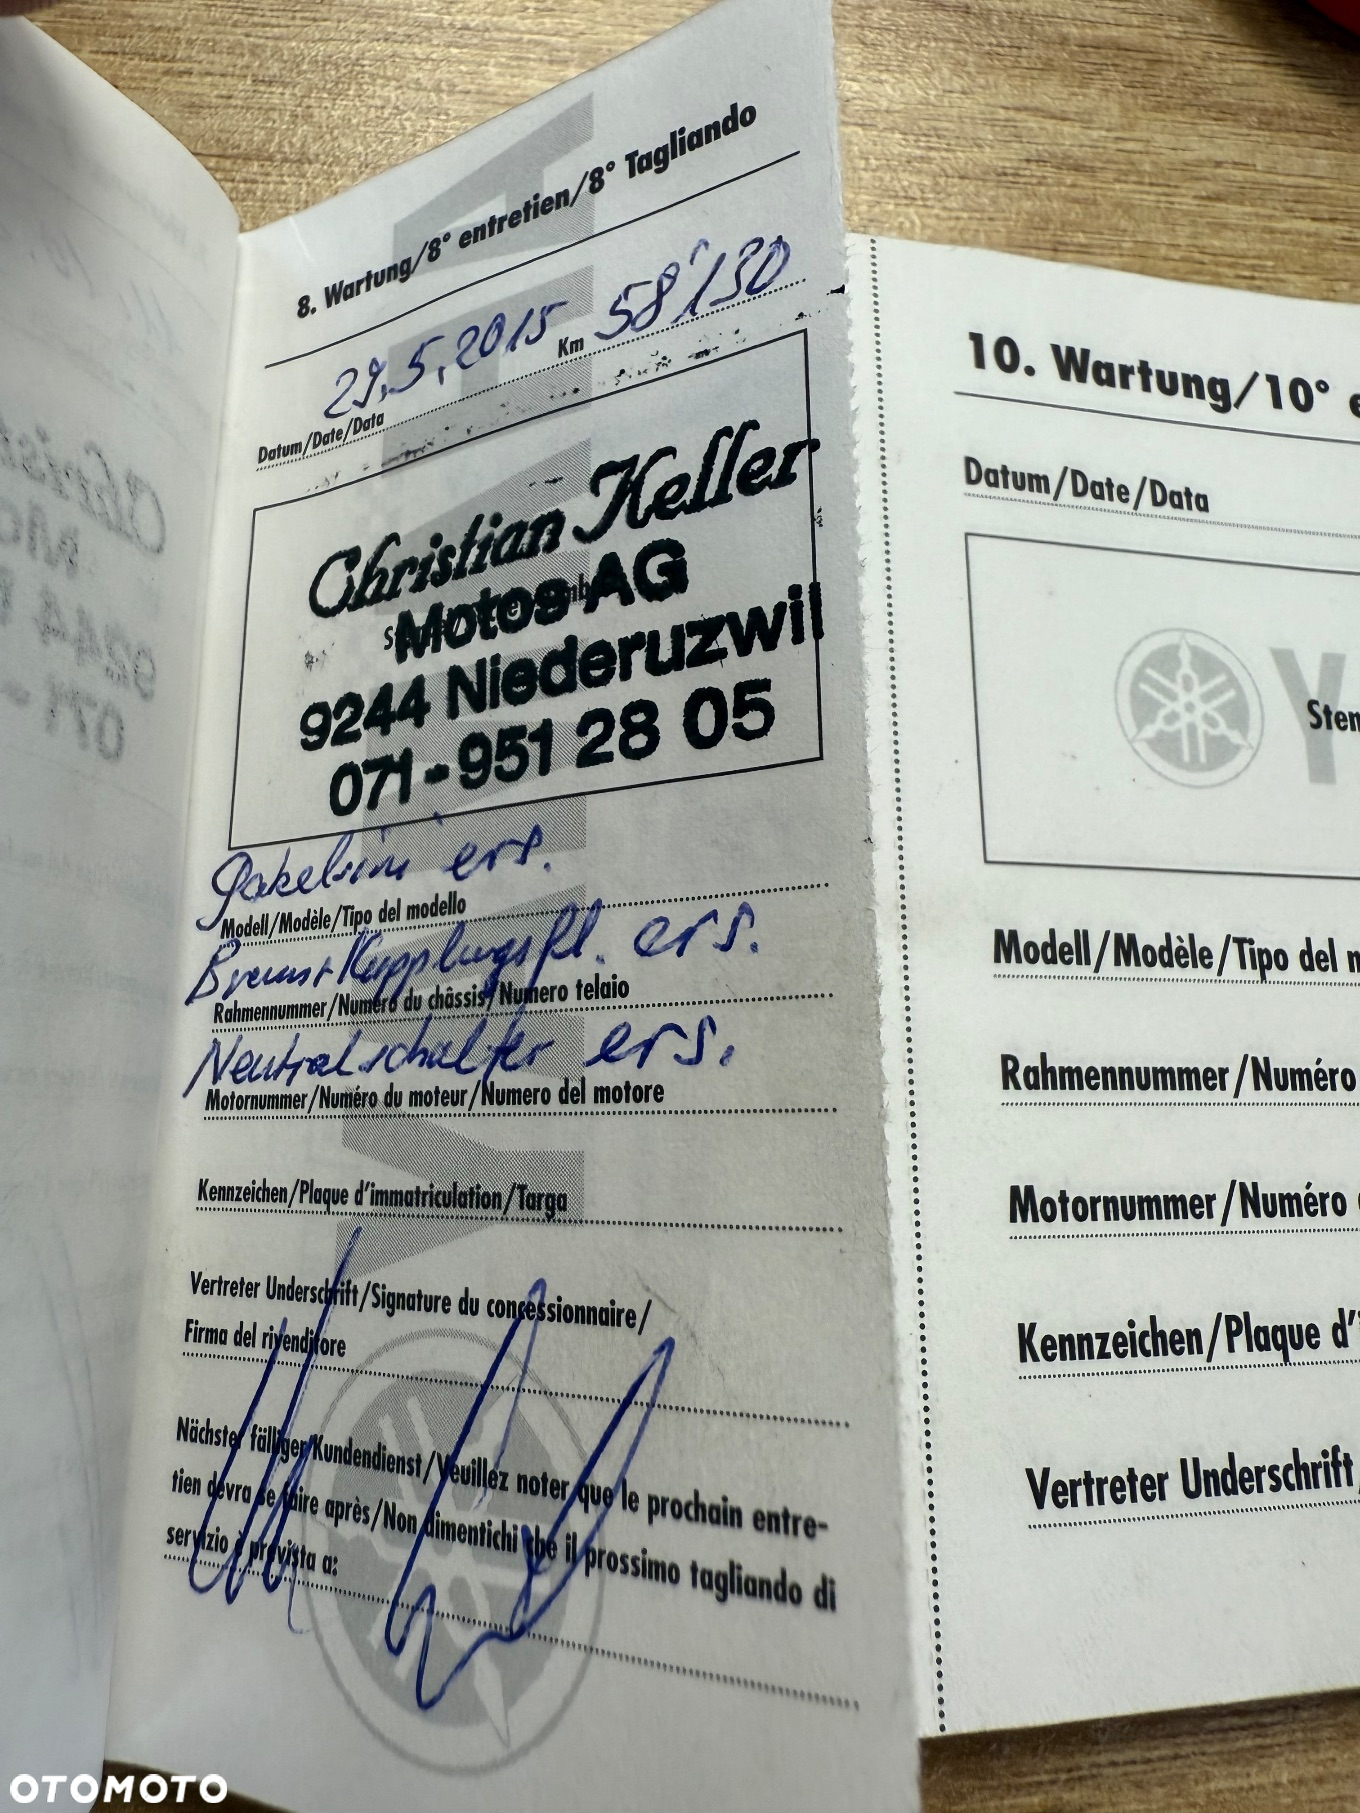 8. Wartung/8° entretien/8° Tagliando
29.5.2015 Km 58'130
Datum/Date/Data
Christian Keller
Motos AG
9244 Niederuzwil
071-951 28 05
ers.
Modell/Modèle/Tipo del modello
Brems+Kupplungsfl. ers.
Rahmennummer/Numéro du châssis/Numero telaio
Neutralschalter ers.
Motornummer/Numéro du moteur/Numero del motore
Kennzeichen/Plaque d'immatriculation/Targa
Vertreter Underschrift/Signature du concessionnaire/
Firma del rivenditore
Nächster fälliger Kundendienst/Veuillez noter que le prochain entre-
tien devra se faire après/Non dimentichi che il prossimo tagliando di
servizio è prevista a:
10. Wartung/10° e
Datum/Date/Data
Y
Stem
Modell/Modèle/Tipo del m
Rahmennummer/Numéro
Motornummer/Numéro
Kennzeichen/Plaque d'
Vertreter Underschrift/
OTOMOTO